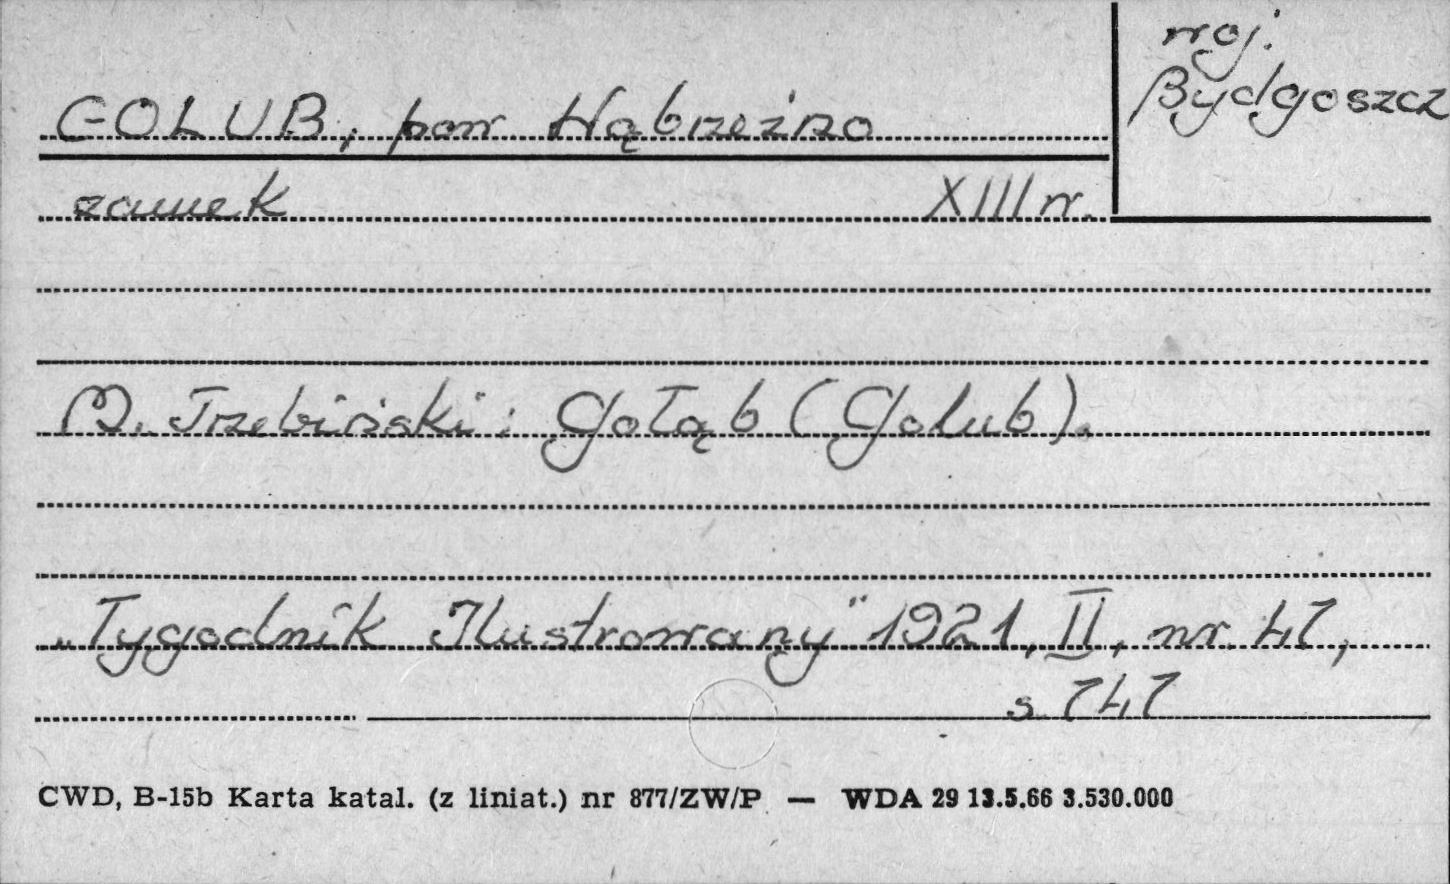 woj.
Bydgoszcz
GOLUB, pow Wąbrzeźno
zamek XIII w.
M. Trzebiński: Gołąb (Golub).
„Tygodnik Ilustrowany" 1921, II, nr 47,
s. 747
CWD, B-15b Karta katal. (z liniat.) nr 877/ZW/P — WDA 29 13.5.66 3.530.000